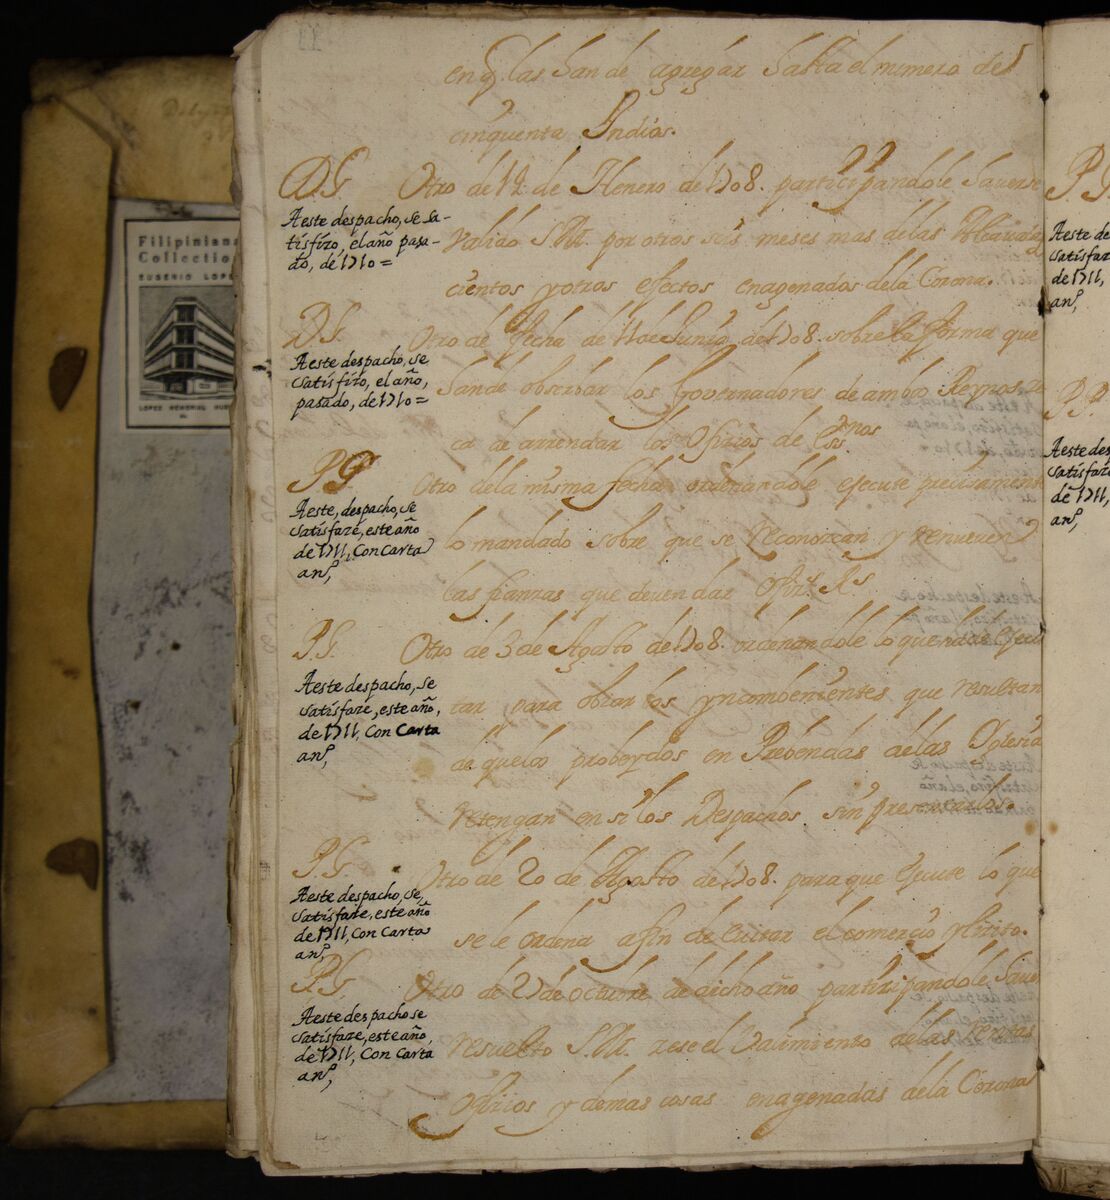 en q̃ las han de agregar hasta el numero de
cinquenta Yndios.
D.G. Otro de 12 de Henero de 1708. participandole haverse
Aeste despacho, se sa-
tisfizo, el año pasa-
do, de 1710=
Valido S.M. por otros seis meses mas delas
cientos y otros efectos enagenados dela Corona.
D.G. Otro de fecha de de Junio de 1708. sobre la forma que
Aeste despacho, se
satisfizo, el año,
pasado, de 1710=
han de observar los Governadores de ambos Reynos
ca de arrendar los Oficios de
P.G. Otro dela misma fecha ordenandole ejecute precisamente
Aeste, despacho, se
satisfaze, este año
de 1711, Con Carta
an,
lo mandado sobre que se reconozcan y renueven
las fianzas que deven dar Ofiz.s R.s
P.G. Otro de 3 de Agosto de 1708. ordenandole lo que ha de ejecu
Aeste despacho, se
satisfaze, este año,
de 1711, Con Carta
an,
tar, para obiar los ynconbenientes que resultan
de que los probeydos en Prebendas delas Yglesia
retengan en si los Despachos sin presentarlos.
P.G. Otro de 20 de Agosto de 1708. para que ejecute lo que
Aeste despacho, se,
satisfaze, este año
de 1711, Con Carta
an,
se le ordena afin de evitar el comercio yllicito.
P.G. Otro de 27 de octubre de dicho año participandole haver
Aeste despacho se
satisfaze, este año,
de 1711, Con Carta
an,
resuelto S.M. zese el Valimiento delas Rentas
Oficios y demas cosas enagenadas dela Corona
Filipiniana
Collection
EUGENIO LOPEZ
LOPEZ MEMORIAL
P.G.
Aeste de
satisfaz
de 1711,
an,
P.P.
Aeste desp
satisfaze
de 1711,
an,